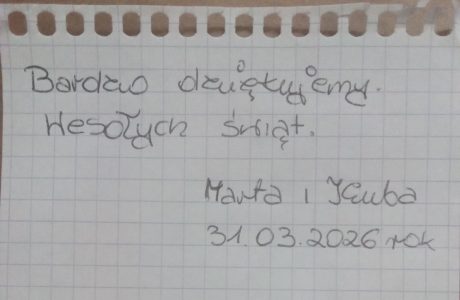 Bardzo dziękujemy.
Wesołych Świąt.
Marta i Kuba
31.03.2026 rok